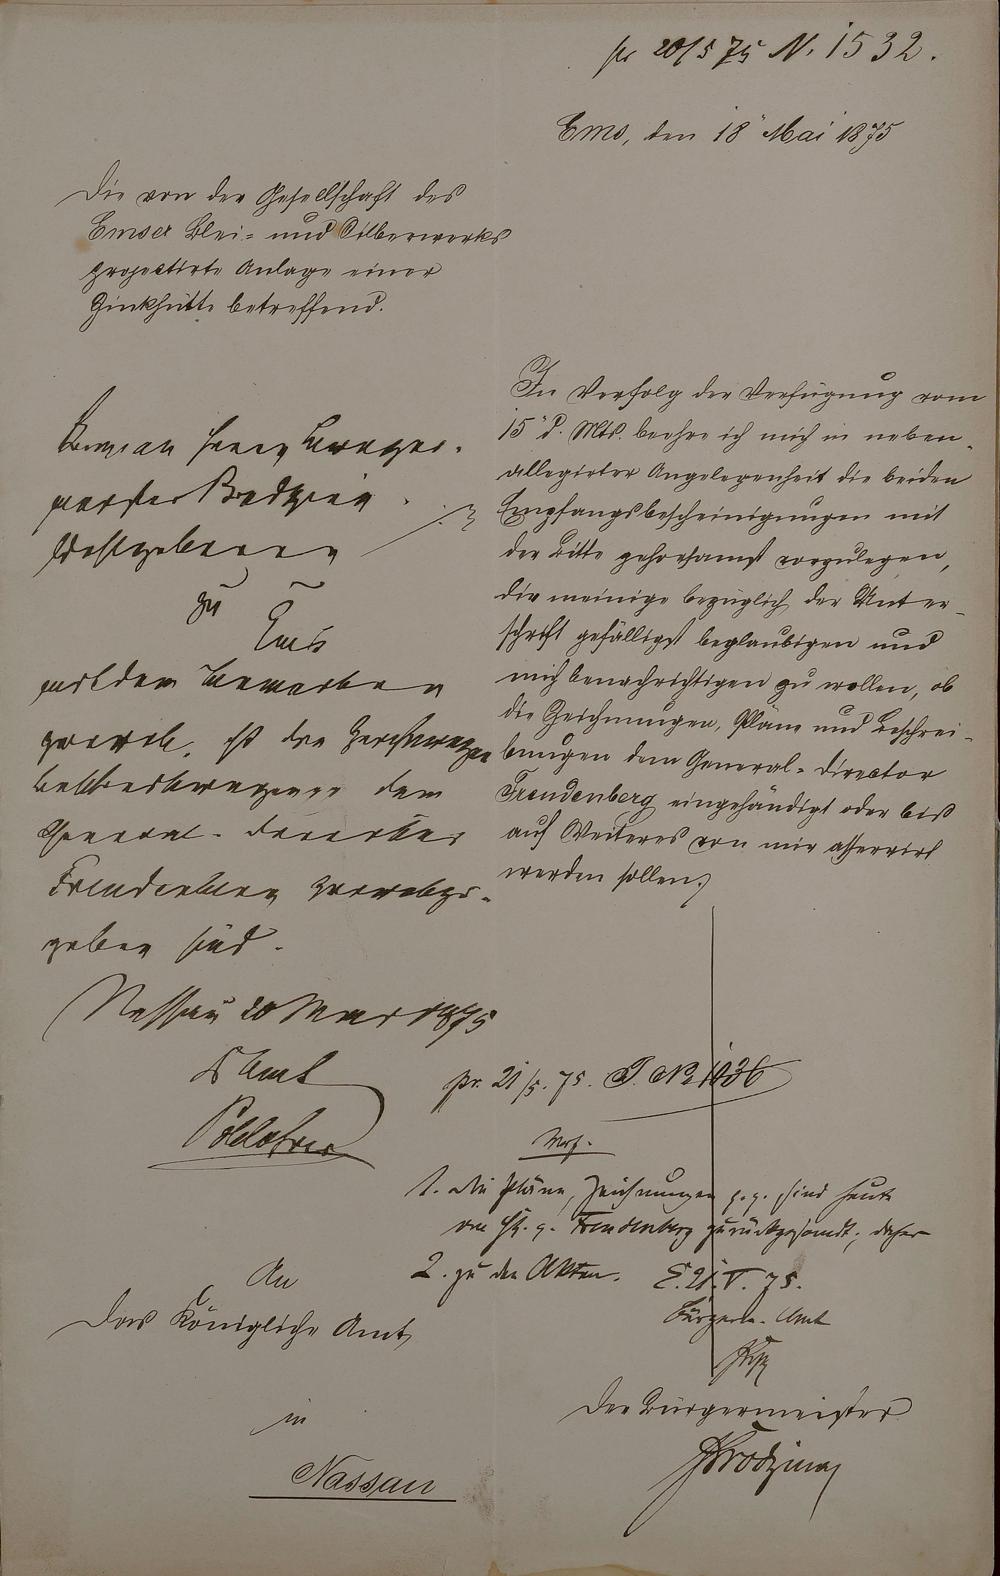 pr 20/5 75 N. 1532.
Ems, den 18 Mai 1875
Die von der Gesellschaft des
Emser Blei- und Silberwerks
projectirte Anlage einer
Zinkhütte betreffend.
In Verfolg der Verfügung vom
15 d. Mts. beehre ich mich in neben-
allegirter Angelegenheit die beiden
Empfangsbescheinigungen mit
der Bitte gehorsamst vorzulegen,
die meinige bezüglich der Unter-
schrift gefälligst beglaubigen und
mich benachrichtigen zu wollen, ob
die Zeichnungen, Pläne und Beschrei-
bungen dem General-Director
Freudenberg eingehändigt oder bis
auf Weiteres von mir asservirt
werden sollen.
Der Bürgermeister
An
das Königliche Amt
in
Nassau
Herrn Bürger-
meister
Wohlgeboren
zu Ems
mit dem Bemerken
ist die
dem
General-Director
Freudenberg
geben sind.
Nassau 20 Mai 1875
K Amt
pr. 21/5. 75. J. No 1036
Verf.
1. Die Pläne, Zeichnungen p.p. sind heute
an H. g. Freudenberg zurückgesandt; daher
2. zu den Akten. E. 21. V. 75.
Bürgerm. Amt